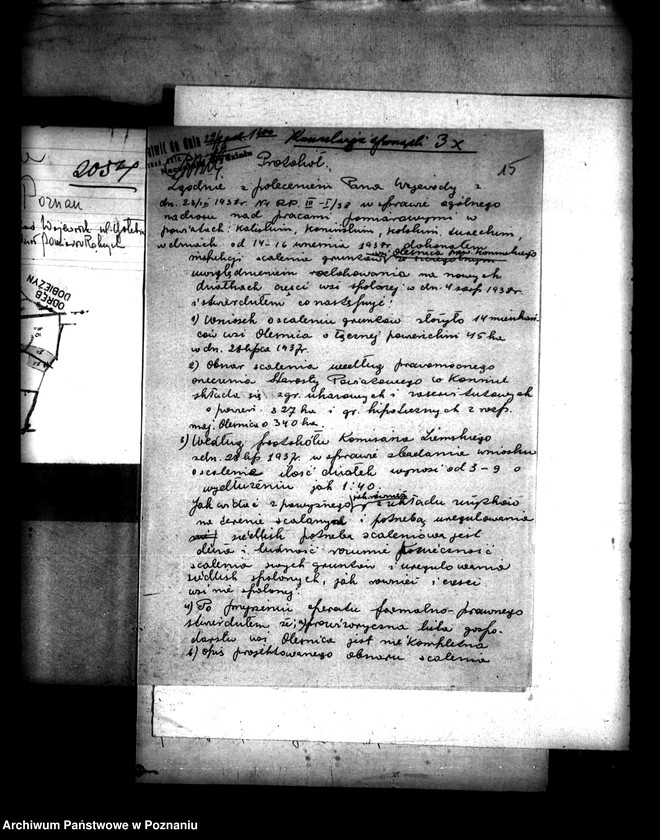 2057
Poznań
ODRĘB
DOBIEŻYN
Kancelaria sporządzi 3x
15
Protokół.
Zgodnie z poleceniem Pana Wojewody z
dn. Nr RR. III-I/38 w sprawie ogólnego
nadzoru nad pracami pomiarowymi w
powiatach: Kaliskim, Konińskim, Kolskim, Tureckim,
w dniach od 14-16 września 1938r. dokonałem
inspekcji scalenia gruntów wsi Oleśnica pow. Konińskiego
uwzględnieniem rozlokowania na nowych
działkach części wsi spalonej w dn. 4 1938r.
i stwierdziłem co następuje:
1) Wniosek o scalenie gruntów złożyło 14 mieszkań-
ców wsi Oleśnica o łącznej powierzchni 45 ha
w dn. 28 lipca 1937r.
2) Obszar scalenia według prawomocnego
orzeczenia Starosty Powiatowego w Koninie
składa się z gr. ukazowych i
o powierz. 327 ha i gr. hipotecznych z rozp.
maj. Oleśnica o 340 ha.
3) Według protokółu Komisarza Ziemskiego
z dn. 28 1937r. w sprawie zbadania wniosku
o scalenie ilość działek wynosi od 3-9 o
wydłużeniu jak 1:40.
Jak widać z powyższego jak również z układu
na terenie scalanych i potrzebą uregulowania
siedlisk potrzeba scaleniowa jest
duża i ludność rozumie konieczność
scalenia swych gruntów i uregulowania
siedlisk spalonych, jak również i części
wsi nie spalonej.
4) Po przejrzeniu operatu formalno-prawnego
stwierdziłem że: a) prowizoryczna lista gospo-
darstw wsi Oleśnica jest nie kompletna
b) opis projektowanego obszaru scalenia
Archiwum Państwowe w Poznaniu